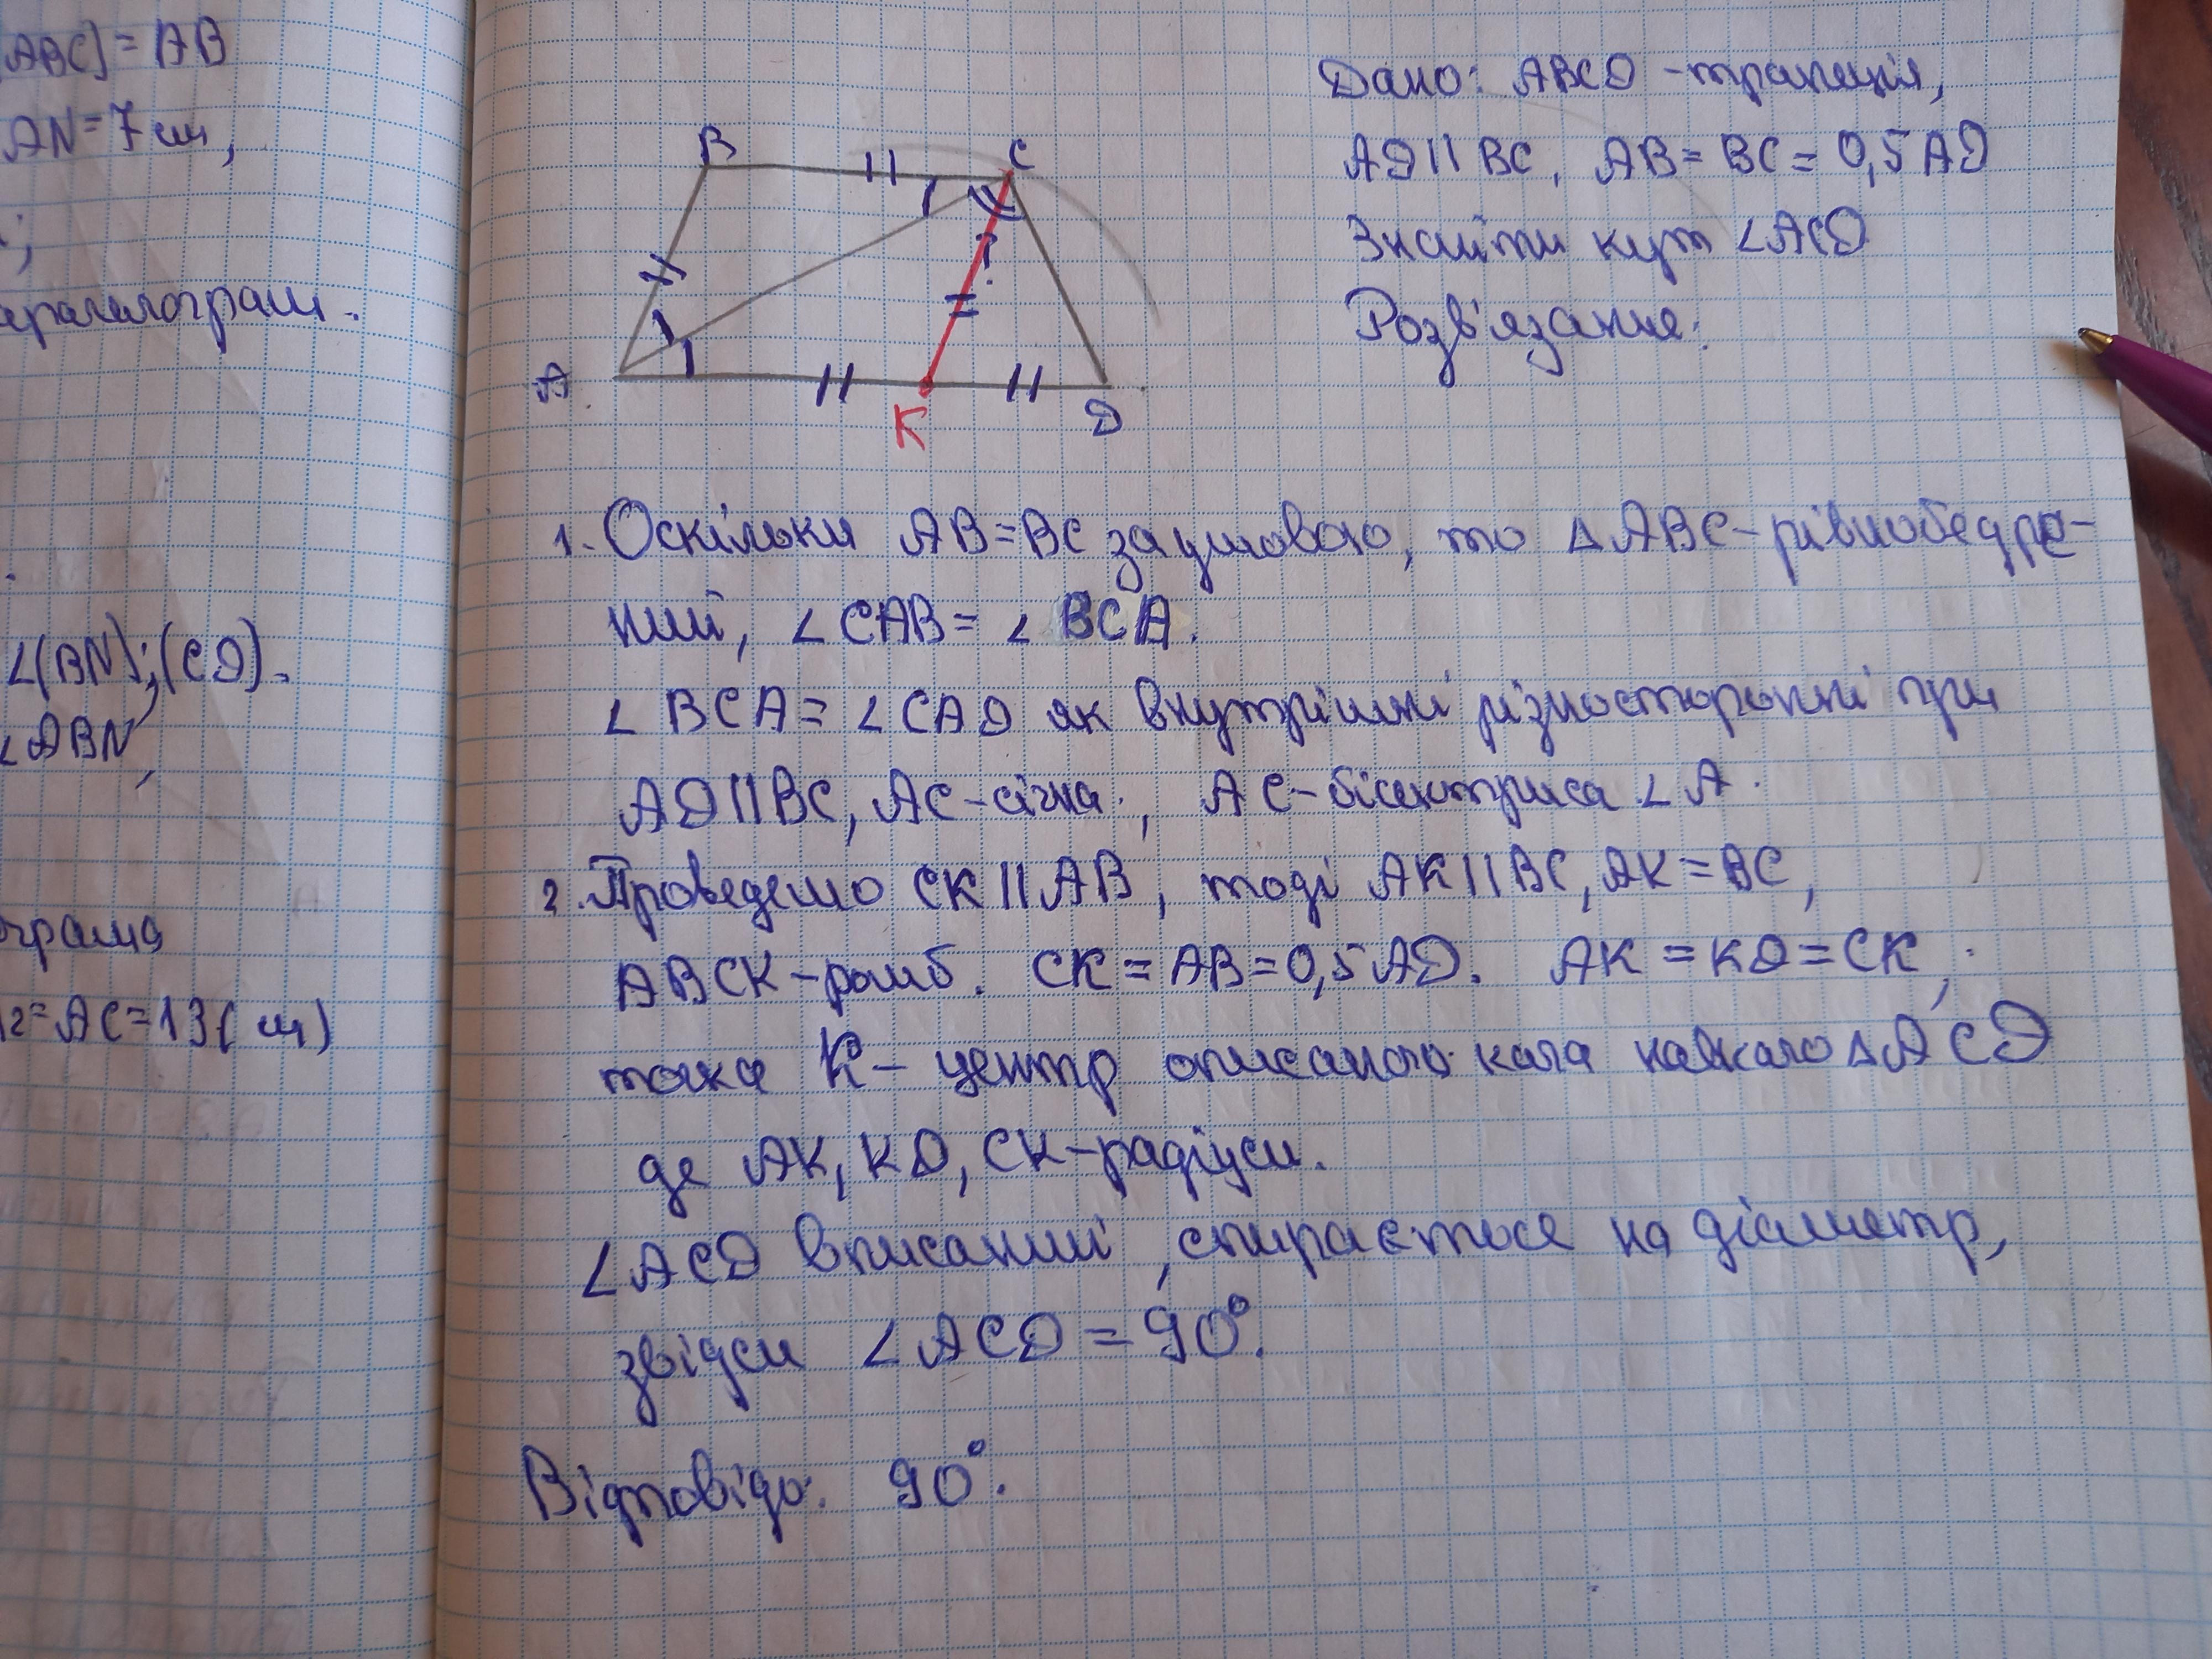 ABC) = AB
AN = 7 см,
і;
аралелограм.
∠(BN);(CD).
∠ABN,
ограма
r2 = AC = 13 (см)
B
C
?
A
K
D
Дано: ABCD - трапеція,
AD || BC, AB = BC = 0,5 AD
Знайти кут ∠ACD
Розв'язання:
1. Оскільки AB = BC за умовою, то △ABC - рівнобедре-
ний, ∠CAB = ∠BCA.
∠BCA = ∠CAD як внутрішні різносторонні при
AD || BC, AC - січна; AC - бісектриса ∠A.
2. Проведемо CK || AB, тоді AK || BC, AK = BC,
ABCK - ромб. CK = AB = 0,5 AD. AK = KD = CK,
точка K - центр описаного кола навколо △ACD
де AK, KD, CK - радіуси.
∠ACD вписаний, спирається на діаметр,
звідси ∠ACD = 90°.
Відповідь: 90°.